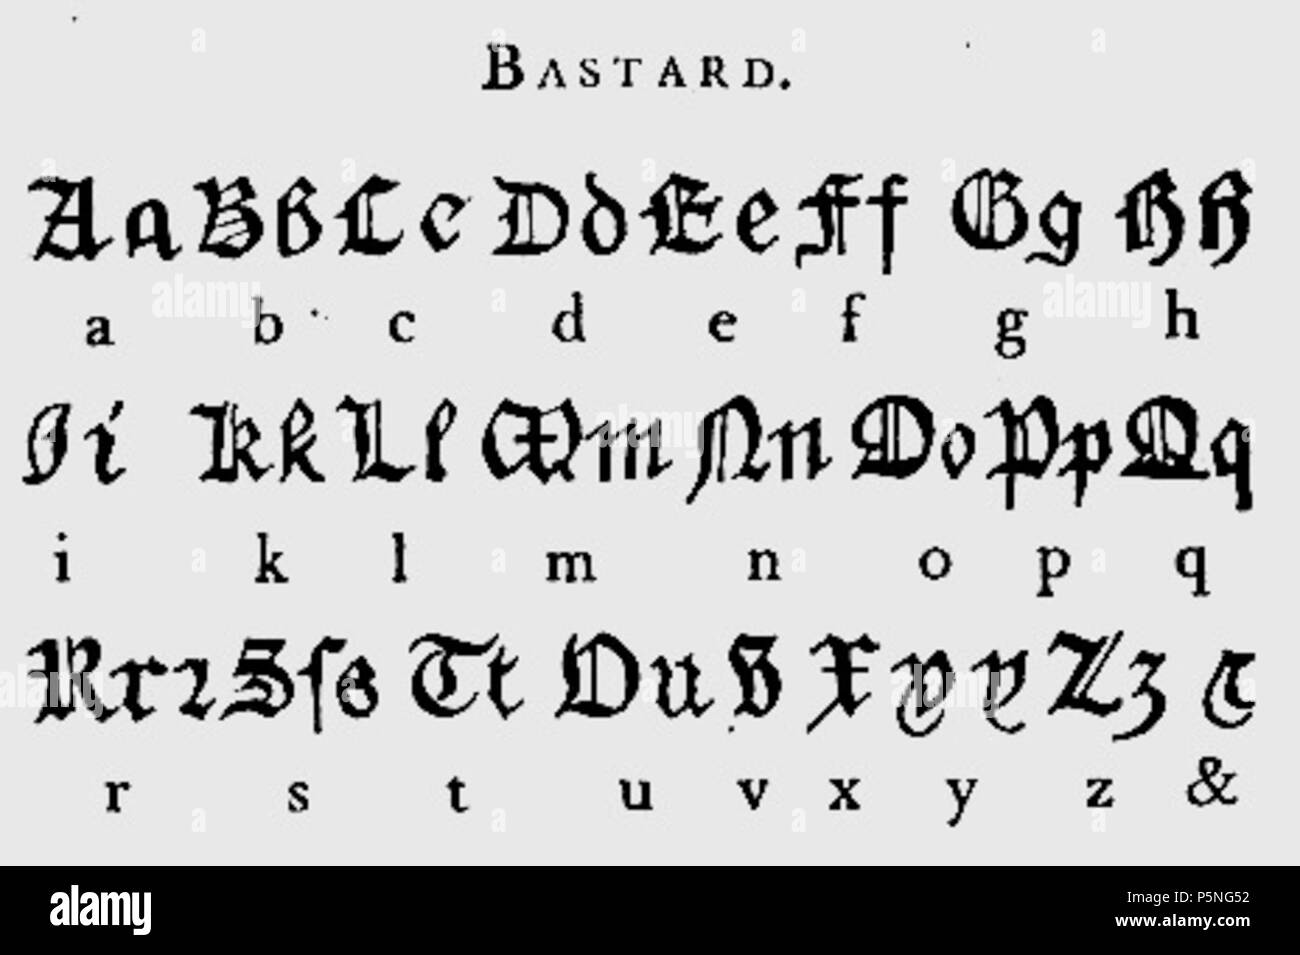 BASTARD.
Aa Bb Cc Dd Ee Ff Gg Hh
a b c d e f g h
Ii Kk Ll Mm Nn Oo Pp Qq
i k l m n o p q
Rrꝛ Sſs Tt Uu V X Yy Zz &
r s t u v x y z &
alamy
Image ID: P5NG52
www.alamy.com